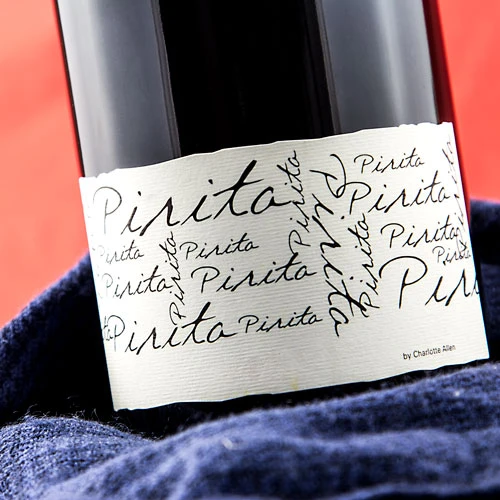 Pirita
Pirita
Pirita
Pirita
Pirita
Pirita
Pirita
Pirita
Pirita
Pirita
Pirita
Pirita
Pirita
Pirita
Pirita
Pirita
by Charlotte Allen